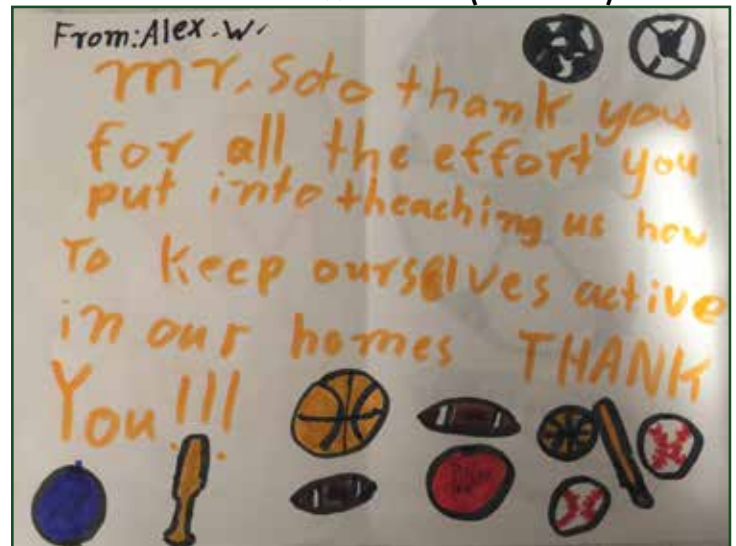 From: Alex. W.
mr. Soto thank you
for all the effort you
put into theaching us how
To keep ourselves active
in our homes THANK
You!!!